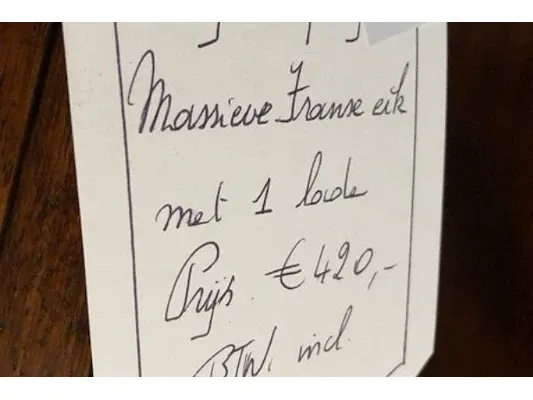 Massieve Franse eik
met 1 lade
Prijs. € 420,-
BTW. incl.